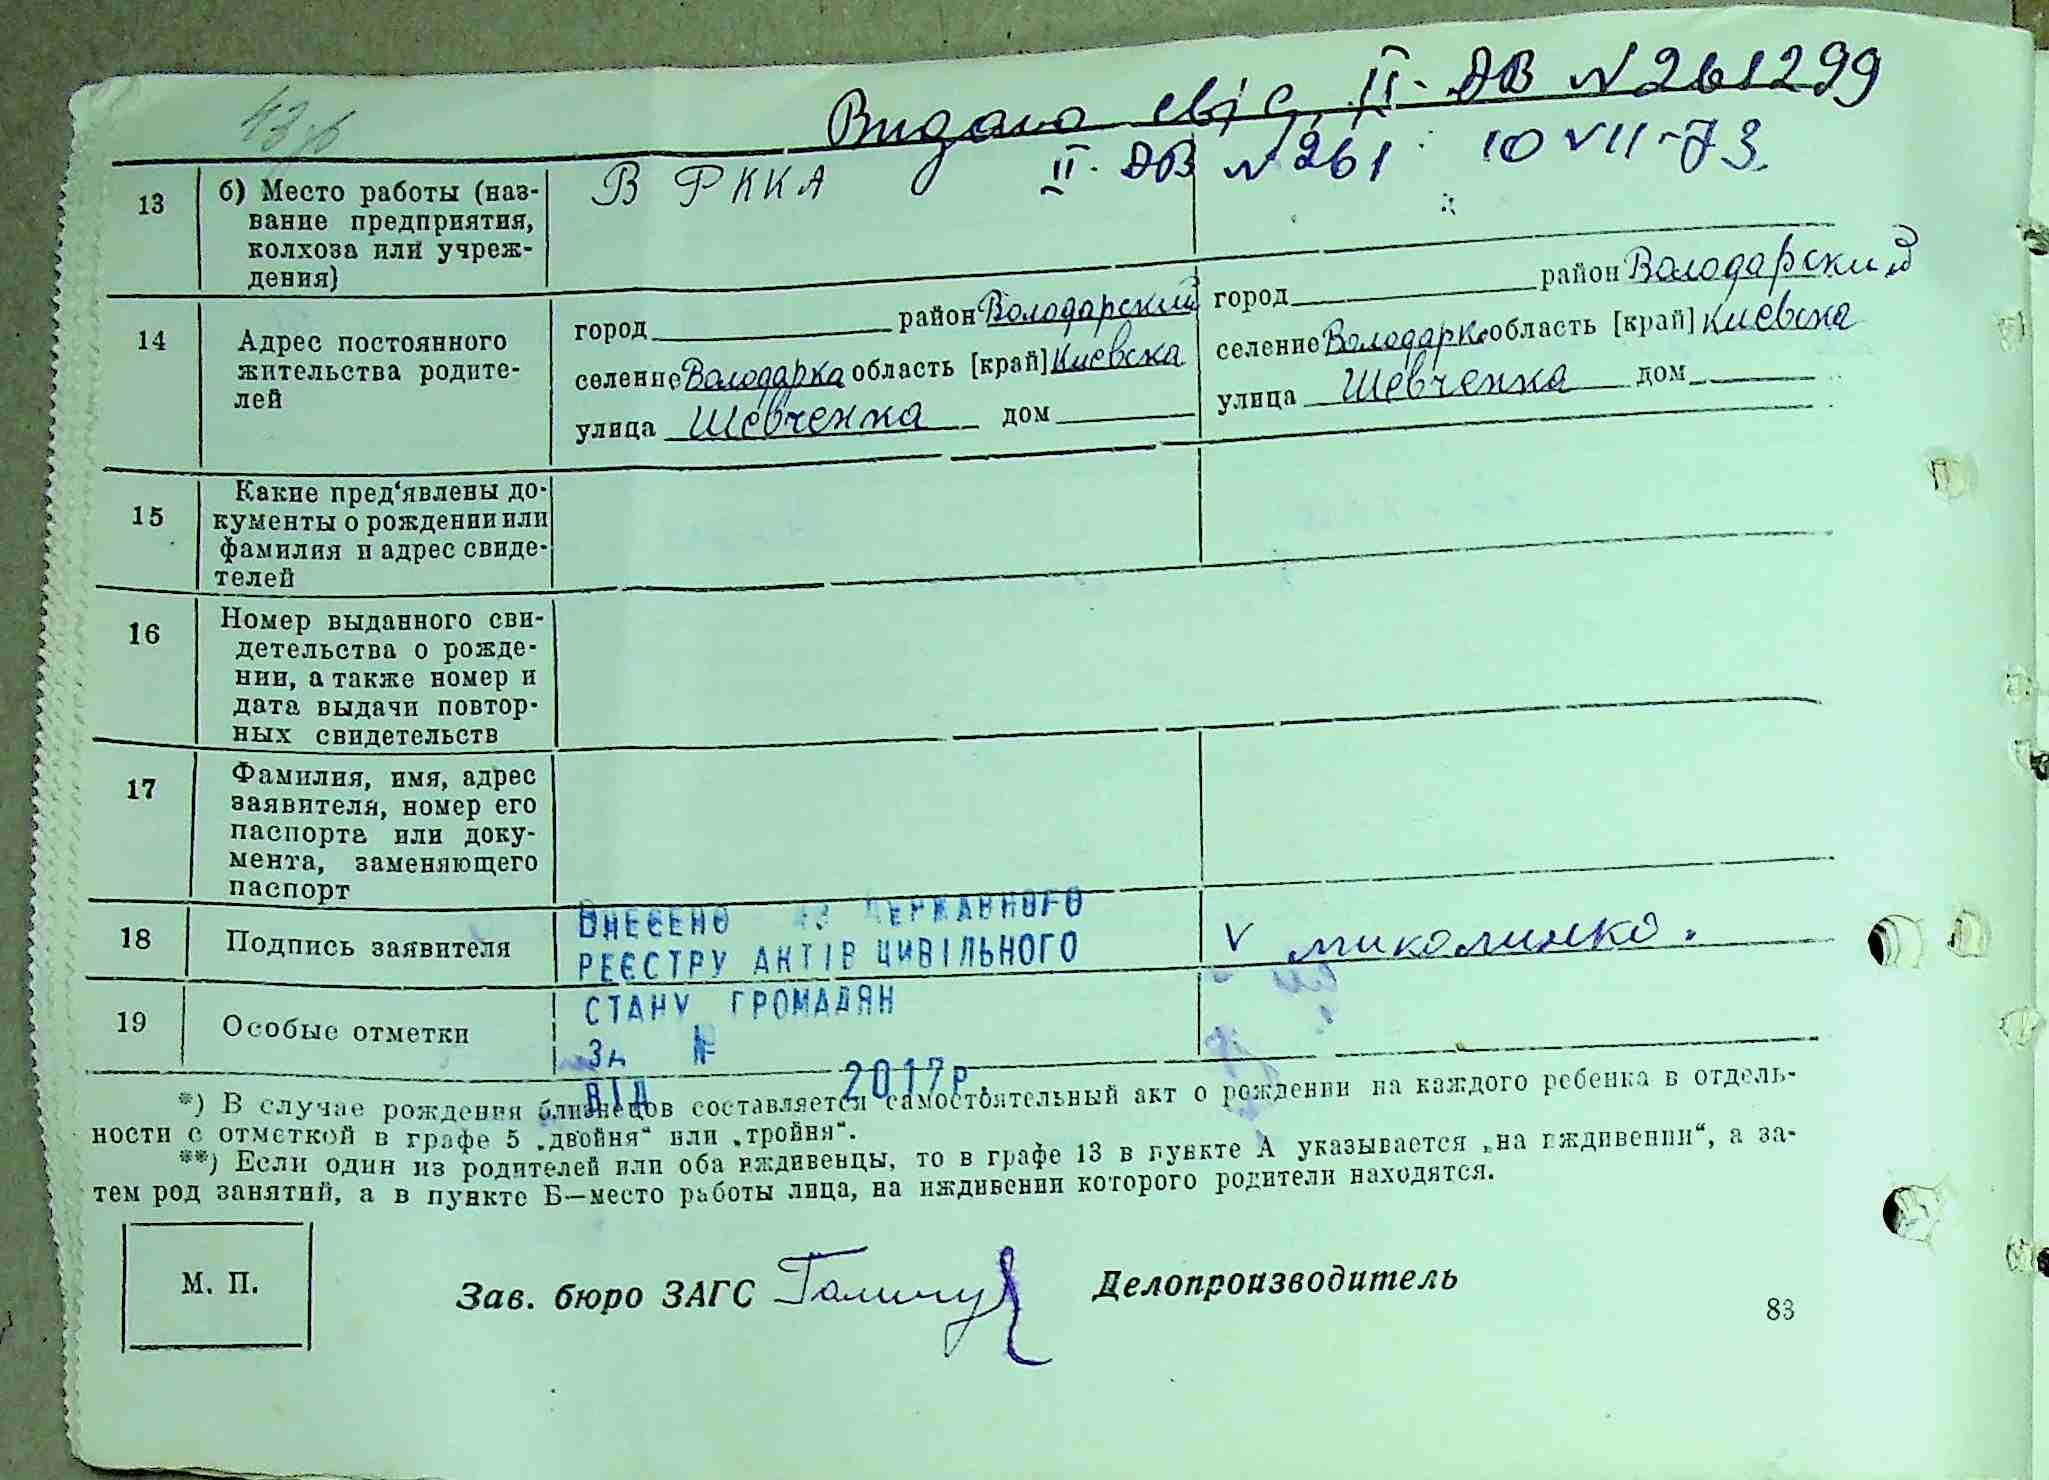 Видано свід. II-ДВ N261299
II-ДВ N261 10 VII-73.
13
б) Место работы (наз-
вание предприятия,
колхоза или учреж-
дения)
В РККА
14
Адрес постоянного
жительства родите-
лей
город район Володарский
селение Володарка область [край] Киевска
улица Шевченка дом
город район Володарский
селение Володарка область [край] Киевска
улица Шевченка дом
15
Какие пред'явлены до-
кументы о рождении или
фамилия и адрес свиде-
телей
16
Номер выданного сви-
детельства о рожде-
нии, а также номер и
дата выдачи повтор-
ных свидетельств
17
Фамилия, имя, адрес
заявителя, номер его
паспорта или доку-
мента, заменяющего
паспорт
18
Подпись заявителя
ВНЕСЕНО ДЕРЖАВНОГО
РЕЄСТРУ АКТІВ ЦИВІЛЬНОГО
СТАНУ ГРОМАДЯН
За №
ВІД 2017р.
V Миколинко.
19
Особые отметки
*) В случае рождения близнецов составляется самостоятельный акт о рождении на каждого ребенка в отдель-
ности с отметкой в графе 5 „двойня“ или „тройня“.
**) Если один из родителей или оба иждивенцы, то в графе 13 в пункте А указывается „на иждивении“, а за-
тем род занятий, а в пункте Б—место работы лица, на иждивении которого родители находятся.
М. П.
Зав. бюро ЗАГС
Делопроизводитель
83